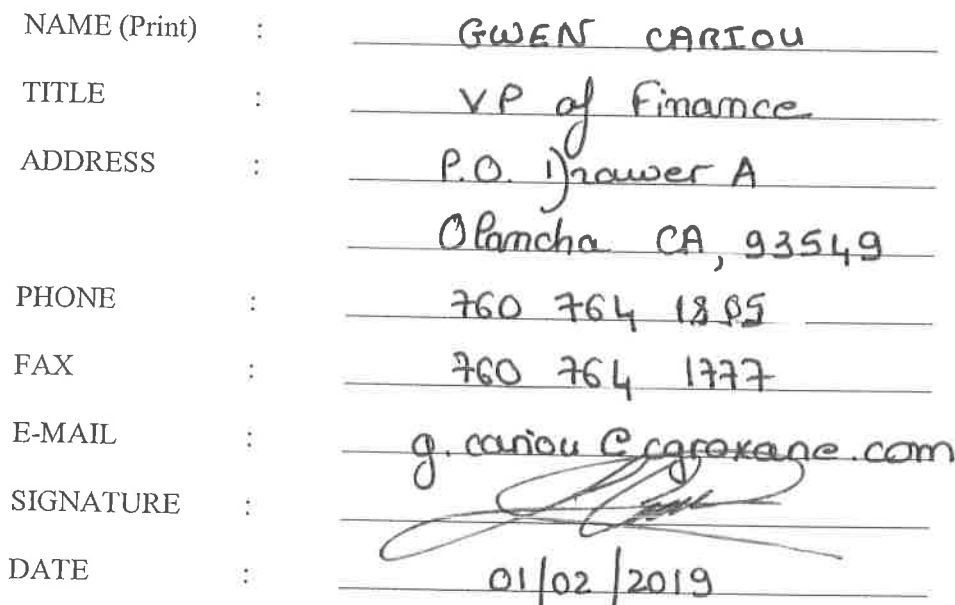 NAME (Print) : GWEN CARIOU
TITLE : VP of Finance
ADDRESS : P.O. Drawer A
Olancha CA, 93549
PHONE : 760 764
FAX : 760 764 1777
E-MAIL : g.cariou@cgroxane.com
SIGNATURE :
DATE : 01/02/2019